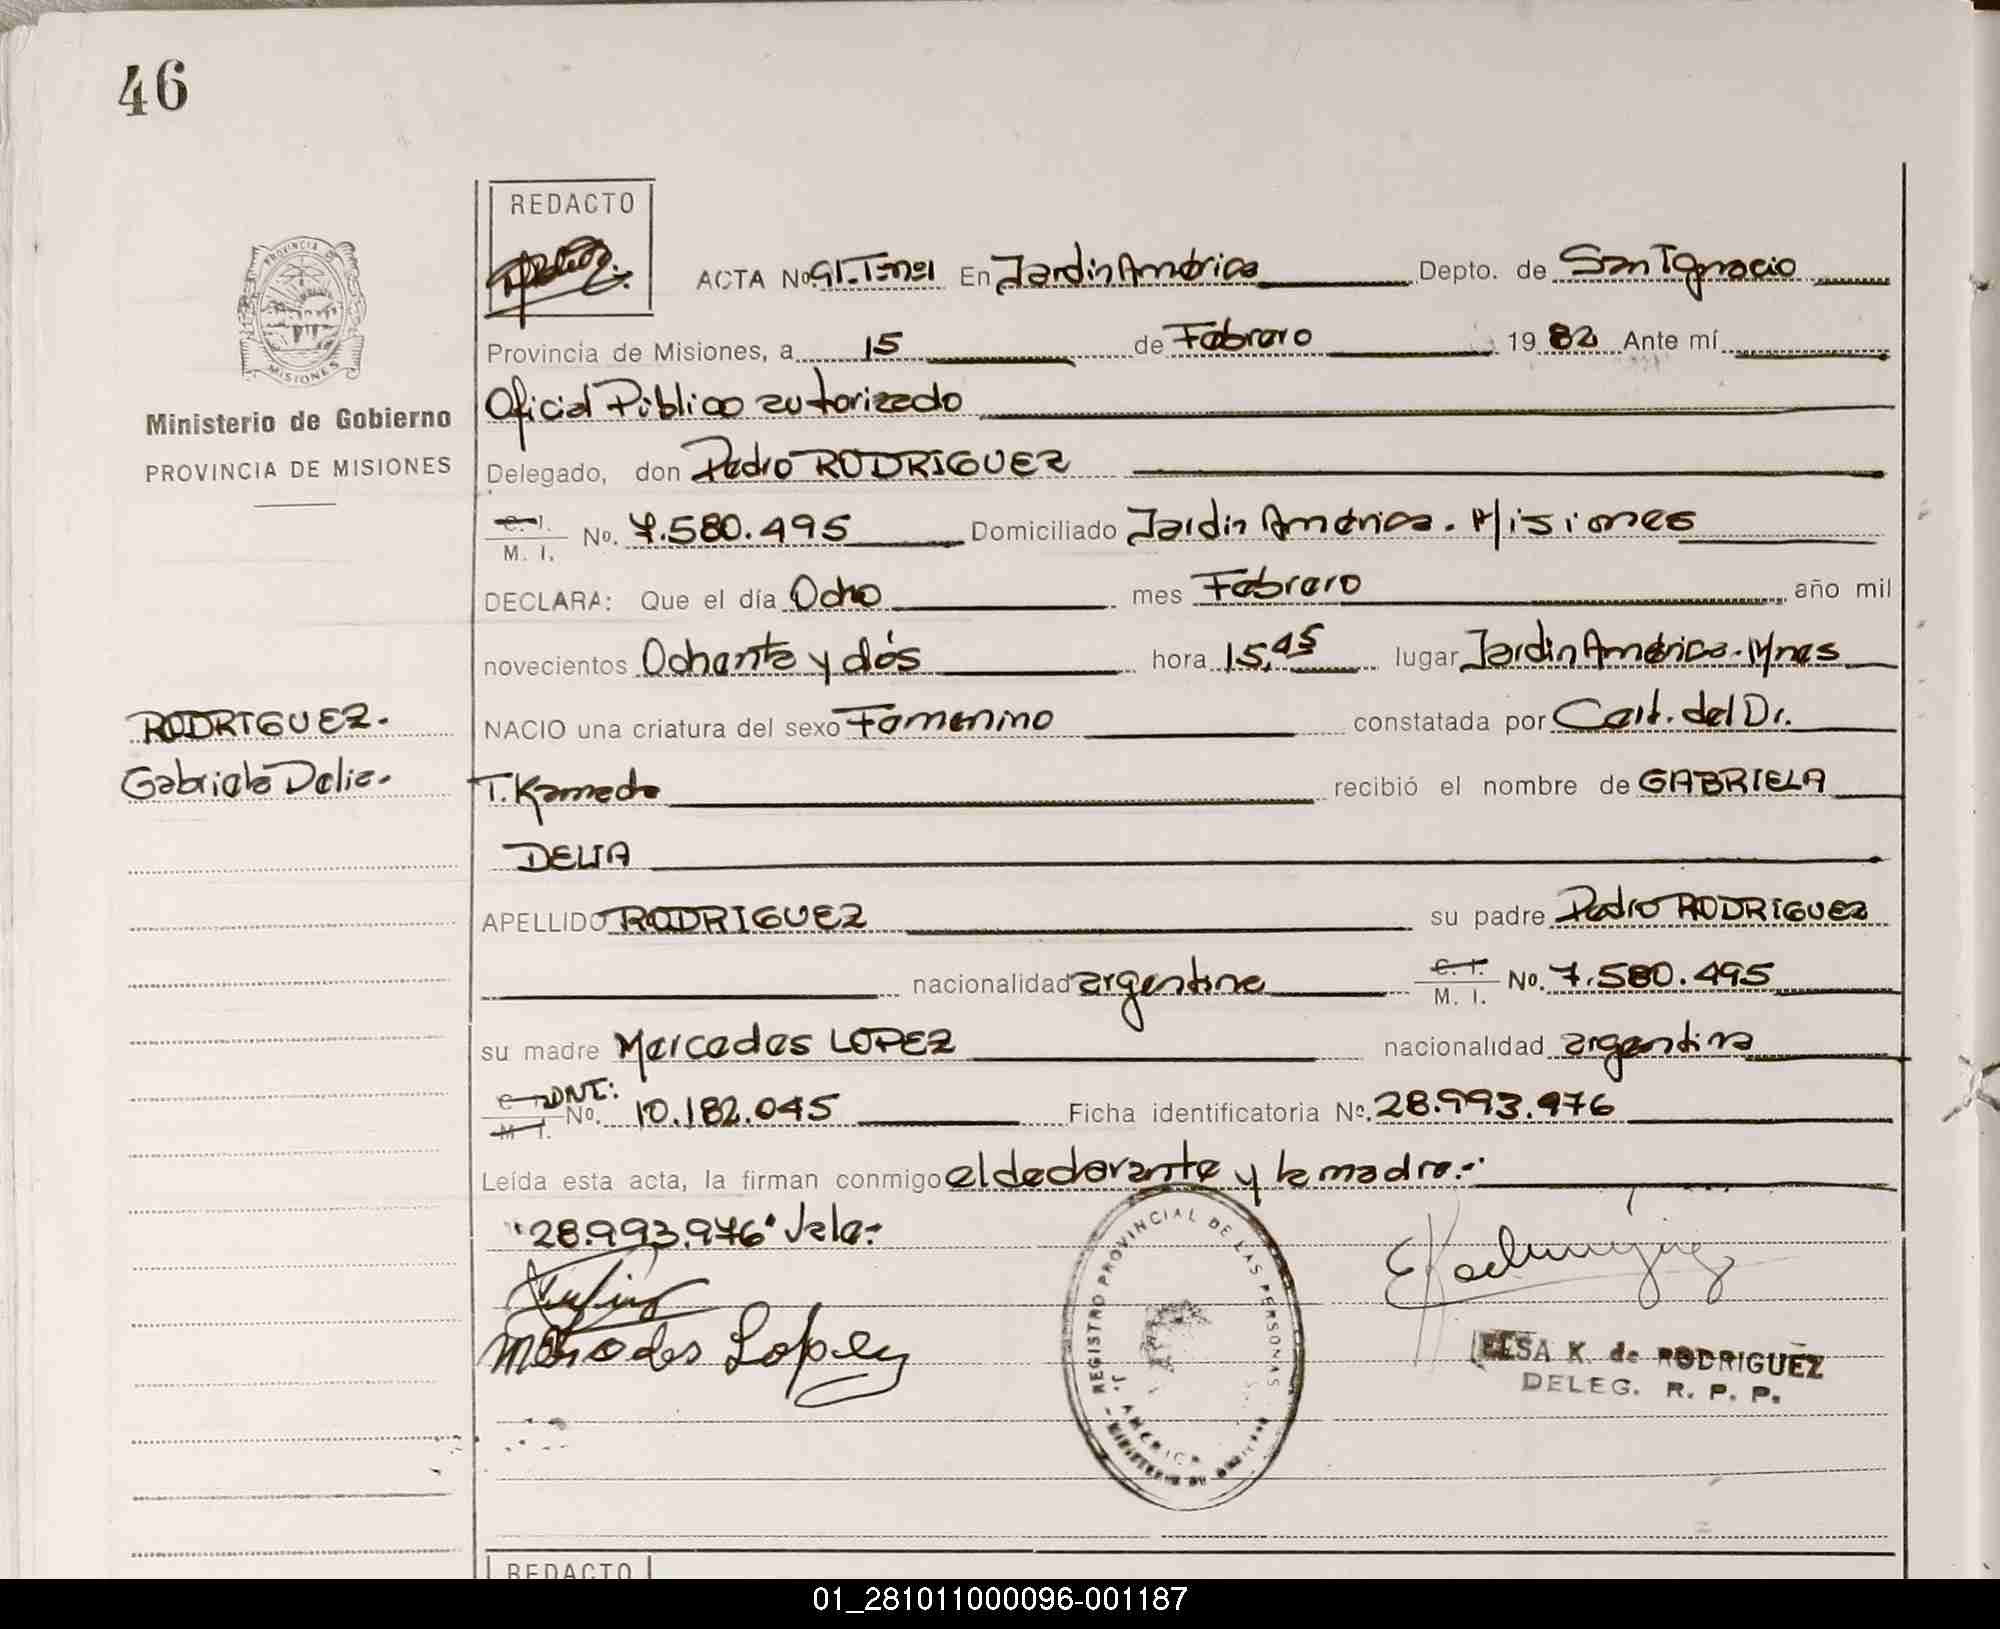 46
REDACTO
ACTA No. 91.T=nº1 En Jardín América Depto. de San Ignacio
PROVINCIA DE MISIONES
Provincia de Misiones, a 15 de Febrero 1982 Ante mí
Ministerio de Gobierno
PROVINCIA DE MISIONES
Oficial Público autorizado
Delegado, don Pedro RODRIGUEZ
C. I. M. I. No. 7.580.495 Domiciliado Jardín América. Misiones
DECLARA: Que el día Ocho mes Febrero año mil
novecientos Ochenta y dós hora 15,45 lugar Jardín América-Mnes
RODRIGUEZ.
NACIO una criatura del sexo Femenino constatada por Cert. del Dr.
Gabriela Delia.
T. Kameda recibió el nombre de GABRIELA
DELIA
APELLIDO RODRIGUEZ su padre Pedro RODRIGUEZ
nacionalidad argentina C. I. M. I. No. 7.580.495
su madre Mercedes LOPEZ nacionalidad argentina
C. DNI: M. I. No. 10.182.045 Ficha identificatoria No. 28.993.976
Leída esta acta, la firman conmigo el declarante y la madre.-
"28.993.976" Vale.-
Mercedes Lopez
REGISTRO PROVINCIAL DE LAS PERSONAS
J. AMERICA
MINISTERIO DE GOBIERNO
ELSA K. de RODRIGUEZ
DELEG. R. P. P.
REDACTO
01_281011000096-001187